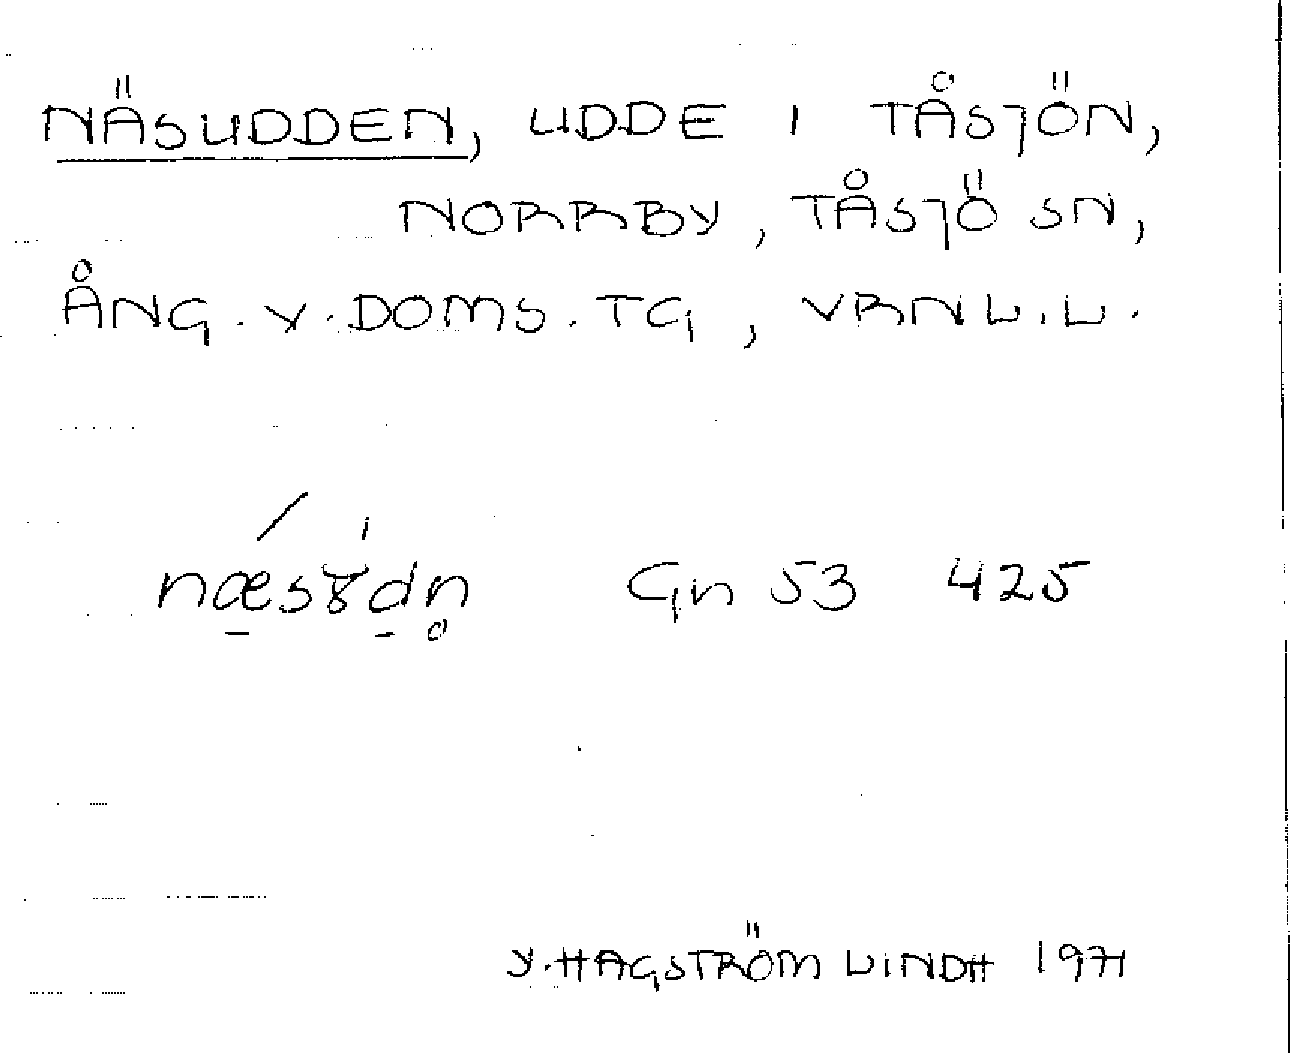 NÄSUDDEN, UDDE I TÅSJÖN,
NORRBY, TÅSJÖ SN,
ÅNG. V. DOMS. TG, VRNL.L.
Gn 53 425
Y. HAGSTRÖM LINDH 1971